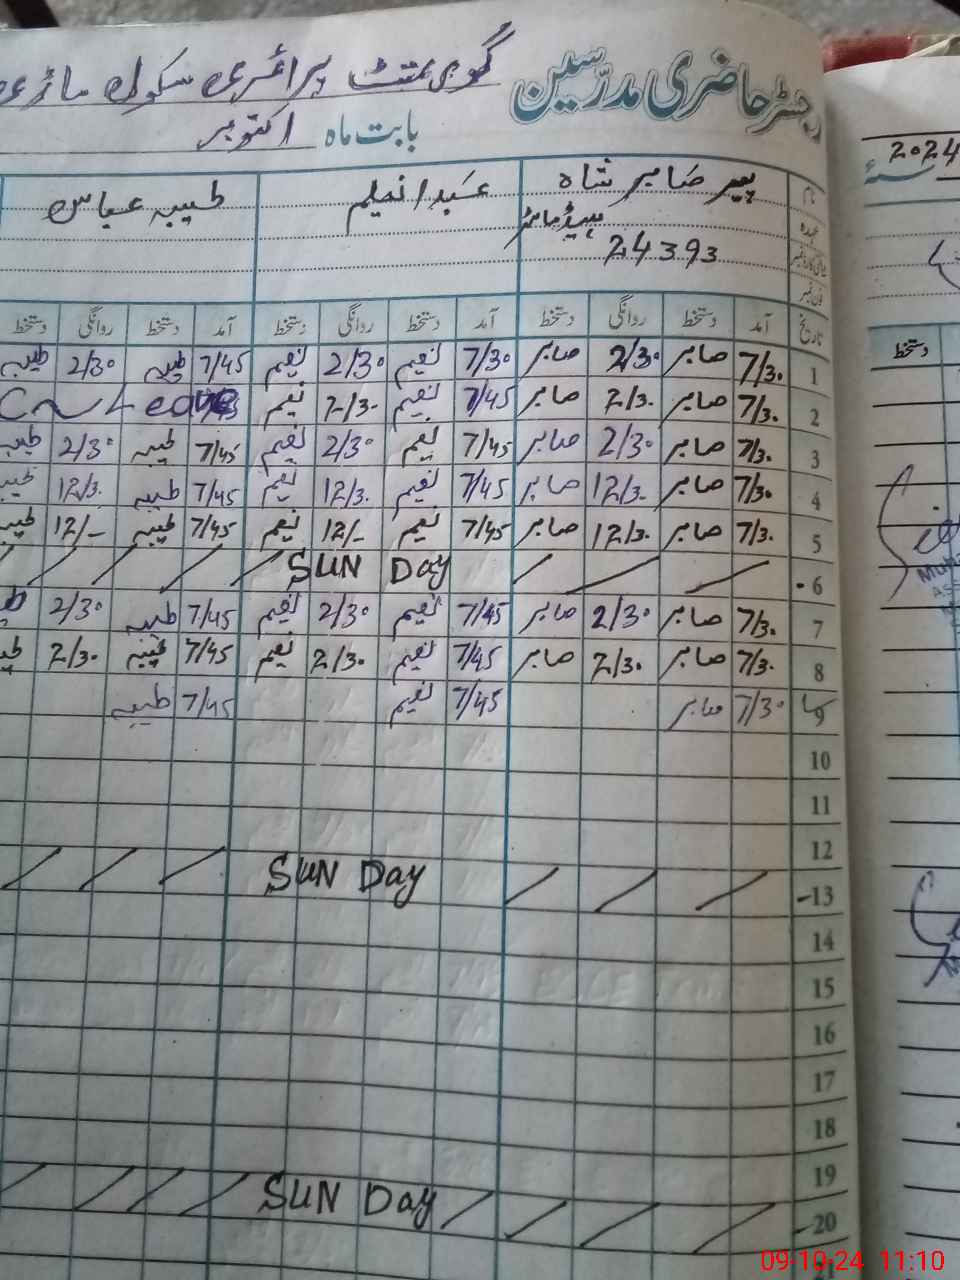 رجسٹر حاضری مدرسین گورنمنٹ پرائمری سکول ماڑی
بابت ماہ اکتوبر
2024 سنہ
نام پیر صابر شاہ عبدالنعیم طیبہ عباس
عہدہ ہیڈماسٹر
24393
فون نمبر
تاریخ آمد دستخط روانگی دستخط آمد دستخط روانگی دستخط آمد دستخط روانگی دستخط
1 7/30 صابر 2/30 صابر 7/30 نعیم 2/30 نعیم 7/45 طیبہ 2/30 طیبہ
2 7/30 صابر 2/30 صابر 7/45 نعیم 2/30 نعیم C~Leave
3 7/30 صابر 2/30 صابر 7/45 نعیم 2/30 نعیم 7/45 طیبہ 2/30 طیبہ
4 7/30 صابر 12/30 صابر 7/45 نعیم 12/30 نعیم 7/45 طیبہ 12/30 طیبہ
5 7/30 صابر 12/30 صابر 7/45 نعیم 12/- نعیم 7/45 طیبہ 12/- طیبہ
6 SUN Day
7 7/30 صابر 2/30 صابر 7/45 نعیم 2/30 نعیم 7/45 طیبہ 2/30
8 7/30 صابر 2/30 صابر 7/45 نعیم 2/30 نعیم 7/45 طیبہ 2/30 طیبہ
9 7/30 صابر 7/45 نعیم 7/45 طیبہ
10
11
12
13 SUN Day
14
15
16
17
18
19
20 SUN Day
دستخط
09-10-24 11:10